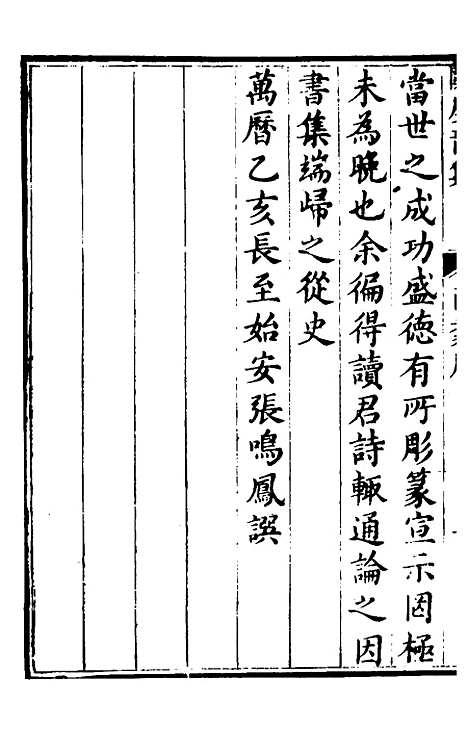 當世之成功盛徳有所彫篆宣示固極
未為晚也余徧得讀君詩輙通論之因
書集端歸之從史
萬曆乙亥長至始安張鳴鳳譔